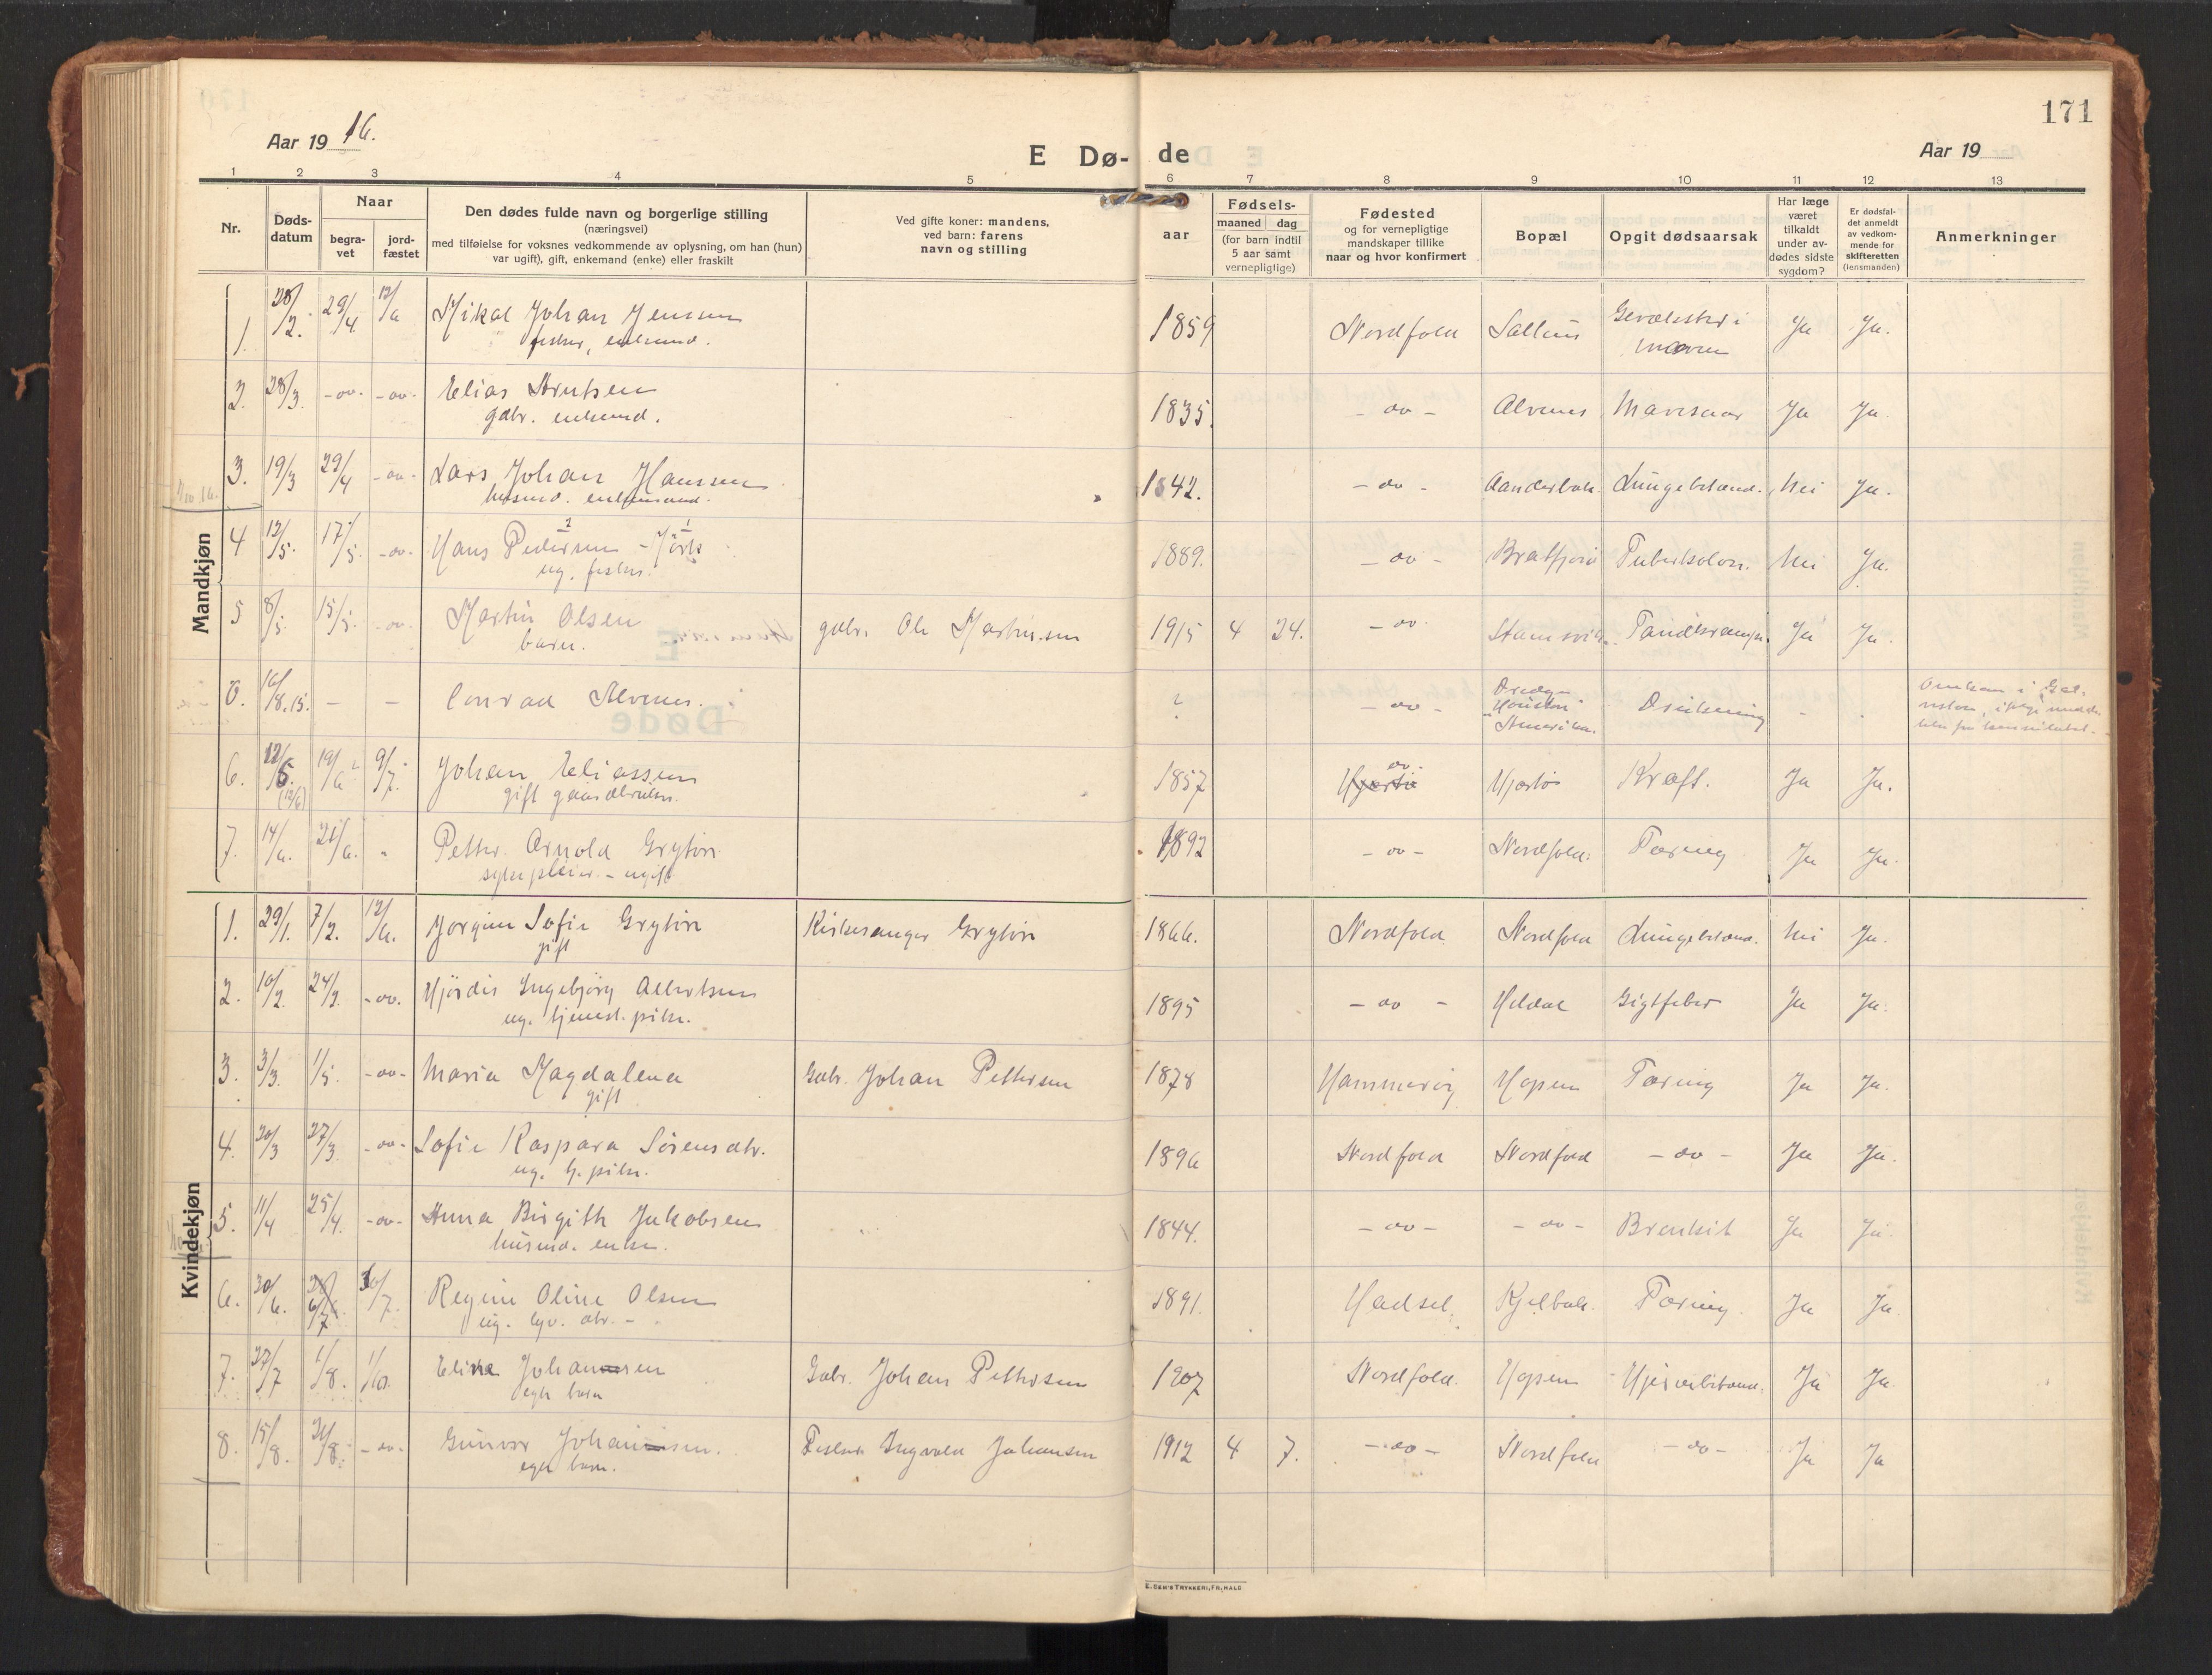 171
Aar 19 16.
E Dø- de
Aar 19
1 2 3 4 5 6 7 8 9 10 11 12 13
Nr.
Døds-
datum
Naar
begra-
vet
jord-
fæstet
Den dødes fulde navn og borgerlige stilling
(næringsvei)
med tilføielse for voksnes vedkommende av oplysning, om han (hun)
var ugift), gift, enkemand (enke) eller fraskilt
Ved gifte koner: mandens,
ved barn: farens
navn og stilling
aar
Fødsels-
maaned dag
(for barn indtil
5 aar samt
vernepligtige)
Fødested
og for vernepligtige
mandskaper tillike
naar og hvor konfirmert
Bopæl
Opgit dødsaarsak
Har læge
været
tilkaldt
under av-
dødes sidste
sygdom?
Er dødsfal-
det anmeldt
av vedkom-
mende for
skifteretten
(lensmanden)
Anmerkninger
Mandkjøn
1. 28/2. 29/4. 12/6 Mikal Johan Jenssen 1859 Nordfold Ja Ja.
fisker, enkemd.
2. 28/3. -do- -do- Elias Knutsen 1835. -do- Alvenes Mavesaar Ja Ja.
gdbr. enkemd.
3. 19/3 29/4 -do- Lars Johan Hanssen 1842. -do- Aanderbak. Lungebetænd. Nei Ja.
husmd. enkemand.
4 12/5. 17/5. -do- Hans Pedersen - 1889. -do- Bratfjord Tuberkolon. Nei Ja.
ug. fisker.
5 8/5. 15/5. -do- Martin Olsen gdbr. Ole Martinsen 1915 4 24. -do- Ja Ja.
barn.
6. 16/8.15. - - Conrad Alvenes. ? -do- Houston Amerika. Drukning
6. 12/6. (12/6) 19/6 9/7. Johan Eliassen 1857 do. Kræft. Ja Ja.
gift gaardbruker.
7. 14/6. 21/6. " Petter Arnold Grytøir 1892 -do- Nordfold. Tæring Ja Ja.
sykepleier. - ugift
Kvindekjøn
1. 29/1. 7/2. 12/6. Jorgine Sofie Grytøir Kirkesanger Grytøir 1866. Nordfold Nordfold Lungebetænd. Nei Ja.
gift
2. 10/2. 24/2. -do. Hjördis Ingebjörg Albertsen 1895 -do- Heldal Gigtfeber Ja Ja.
ug. tjenest. pike.
3. 3/3. 1/5. -do- Maria Magdalena Gdbr. Johan Pettersen 1878 Hammerøy Hopen Tæring Ja Ja.
gift
4. 20/3 27/3. -do- Sofie Kaspara Sörensdtr. 1896 Nordfold Nordfold -do- Ja Ja.
ug. tj. pike.
5. 11/4 25/4. -do- Anna Birgith Jakobsen 1844. -do- -do- Bronkit Ja Ja.
husmd. enke.
6. 30/6. 30/7. Regine Oline Olsen 1891. Hadsel. Kjelbak. Tæring. Ja Ja
ug. dtr. -
7. 27/7 1/8. 1/10. Eline Johansen Gdbr. Johan Pettersen 1907 Nordfold. Hopen Ja Ja.
egte barn
8. 15/8. 21/8. -do- Gunvor Johansen. Fisker Ingvald Johansen 1912 4 7. -do- Nordfold -do- Ja Ja
egte barn.
E. SEM'S TRYKKERI, FR.HALD